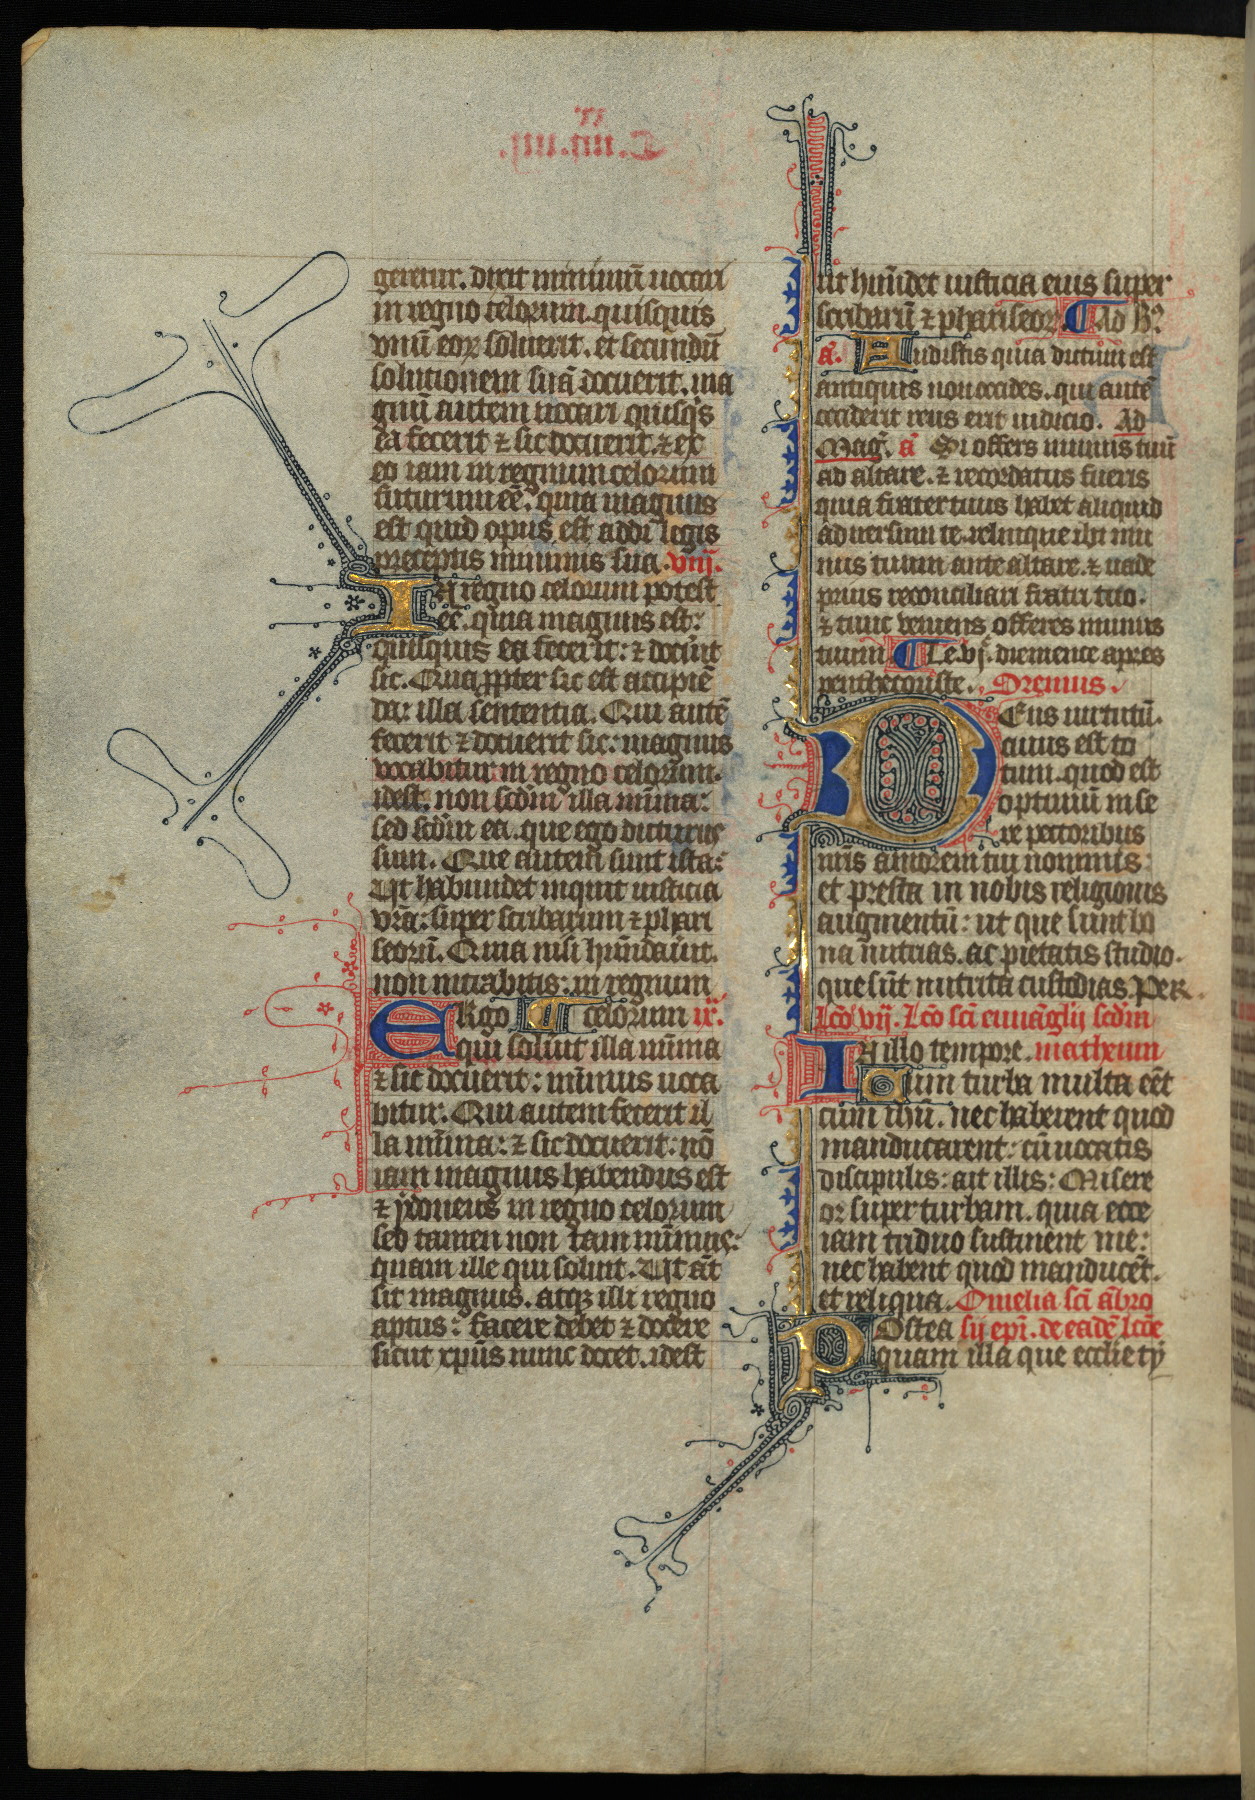 geretur. dicit minimū uocari
in regno celorum. quisquis
vnū eoꝝ soluerit. et secundū
solutionem suā docuerit. ma
gnū autem uocari quisq̄s
ea fecerit ⁊ sic docuerit. ⁊ ex
eo iam in regnum celorum
futurum eē. quia magnus
est quid opus est addi legis
preceptis minimis sua. viij.
IN regno celorum potest
eē. quia magnus est:
quisquis ea fecerit: ⁊ docūit
sic. Qua ꝓpter sic est accipiē
da: illa sententia. Qui autē
fecerit ⁊ docuerit sic: magnus
vocabitur in regno celorum.
idest. non scdm̄ illa mīma:
sed scdm̄ ea. que ego dicturus
sum. Que autem sunt ista:
Ut habundet inquit iusticia
vrā: super scribarum ⁊ phari
seorū. Quia nisi hūndaūit.
non intrabitis: in regnum
ERgo qui celorum ix.
qui soluit illa mīma
⁊ sic docuerit: mīmus uoca
bitur. Qui autem fecerit il
la mīma: ⁊ sic docuerit: nō
iam magnus habendus est
⁊ ydoneus in regno celorum
sed tamen non tam mīmus:
quam ille qui soluit. Ut aūt
sit magnus. atqꝫ illi regno
aptus: facere debet ⁊ docere
sicut xpūs nunc docet. idest
ut hūndet iusticia eius super
scribarū ⁊ phariseoꝝ. ¶ Ad Bᵒ
ā. Audistis quia dictum est
antiquis non occides. qui autē
occiderit reus erit iudicio. Ad
Mag̅. ā Si offers munus tuū
ad altare. ⁊ recordatus fueris
quia frater tuus habet aliquid
aduersum te. relinque ibi mu
nus tuum ante altare. ⁊ uade
prius reconciliari fratri tuo.
⁊ tunc veniens offeres munus
tuum. ¶ Le. vj. diemence apres
penthecouste. Oremus.
DEus uirtutū.
cuius est to
tum. quod est
optimū inse
re pectoribus
nr̄is amorem tui nominis:
et presta in nobis religionis
augmentū: ut que sunt bo
na nutrias. ac pietatis studio.
que sūt nutrita custodias PER.
Lc̄o vij. Lc̄o sc̄i euuāglij scd̄m
IN illo tempore. matheum
Cum turba multa eēt
cum ihū. nec haberent quod
manducarent: cū uocatis
discipulis: ait illis: Misere
or super turbam. quia ecce
iam triduo sustinent me:
nec habent quod manducēt.
et reliqua. Omelia sc̄i ābro
POstea sij ep̄i. de eadē lc̄ōe
quam illa que eccl̄ie ty